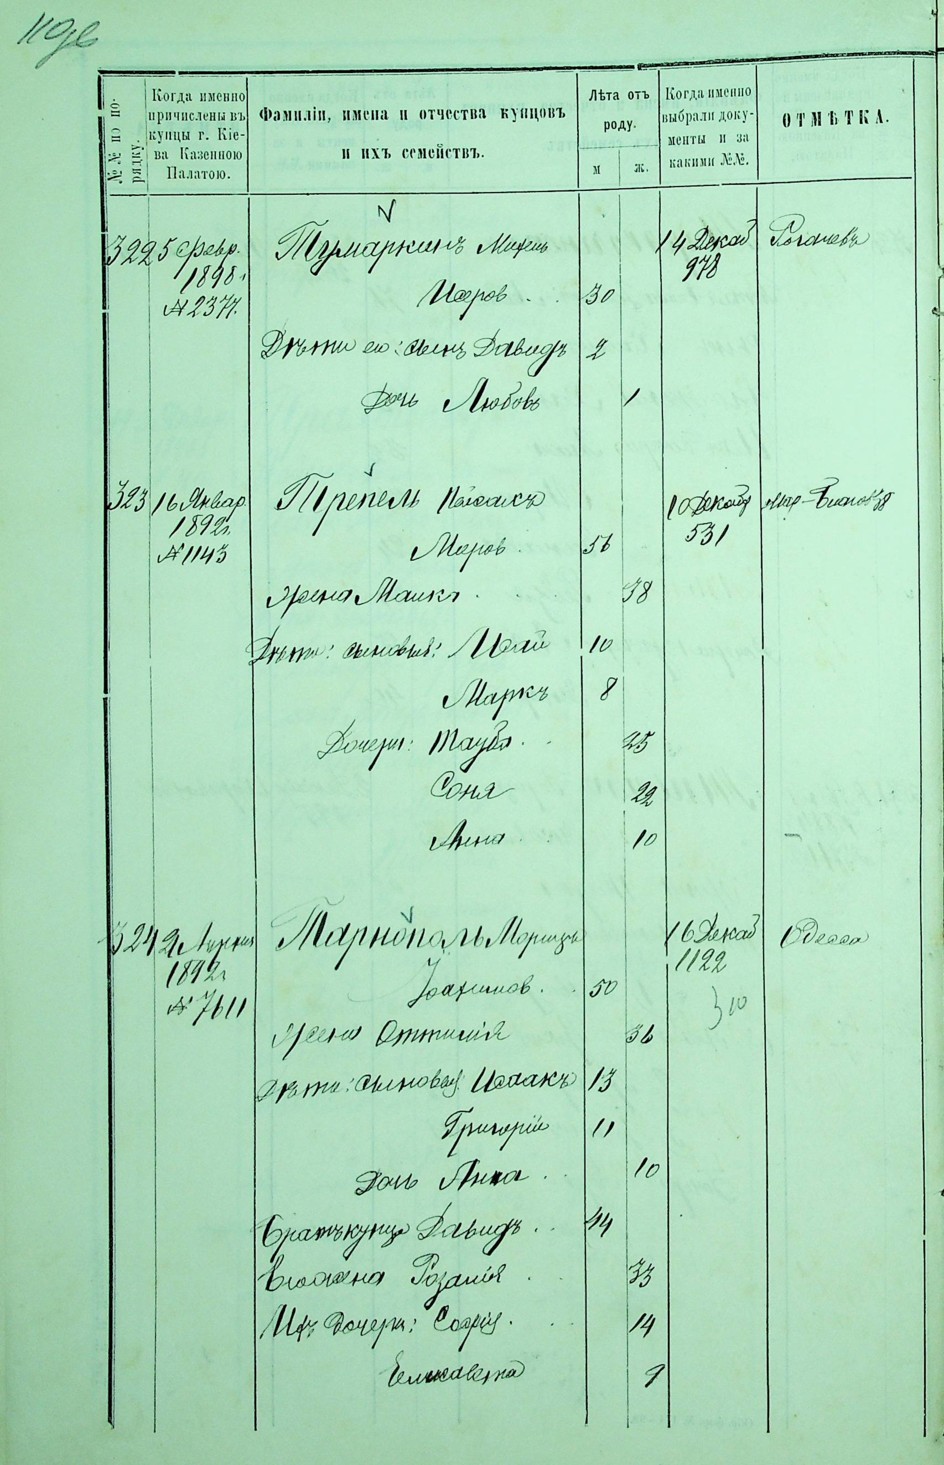 №№ по по-
рядку.
Когда именно
причислены въ
купцы г. Кіе-
ва Казенною
Палатою.
Фамиліи, имена и отчества купцовъ
и ихъ семействъ.
Лѣта отъ
роду.
м
ж.
Когда именно
выбрали доку-
менты и за
какими №№.
ОТМѢТКА.
322 5 Февр. Тумаркинъ 14 Декаб Рогачевъ
1898 г. 978
№ 2377. 30
Дѣти его: сынъ Давидъ 2
Дочь Любовь 1
323 16 Январ. Трепель 10 Декабр
1892 г. 531
№ 1143 Меров. 56
Жена Малка 38
Дѣти: сыновья: 10
Маркъ 8
Дочери: Тауба 25
Соня 22
Анна 10
324 Тарнополь Морицъ 16 Декаб Одесса
1892 г. 1122
№ 7611 Іоахимов. 50
310
Жена Оттилія 36
Дѣти: сыновья: Исаакъ 13
Григорій 11
Дочь Анна 10
Братъ купца Давидъ 44
Его жена Розалія 33
Ихъ дочери: Софія 14
Елисавета 9